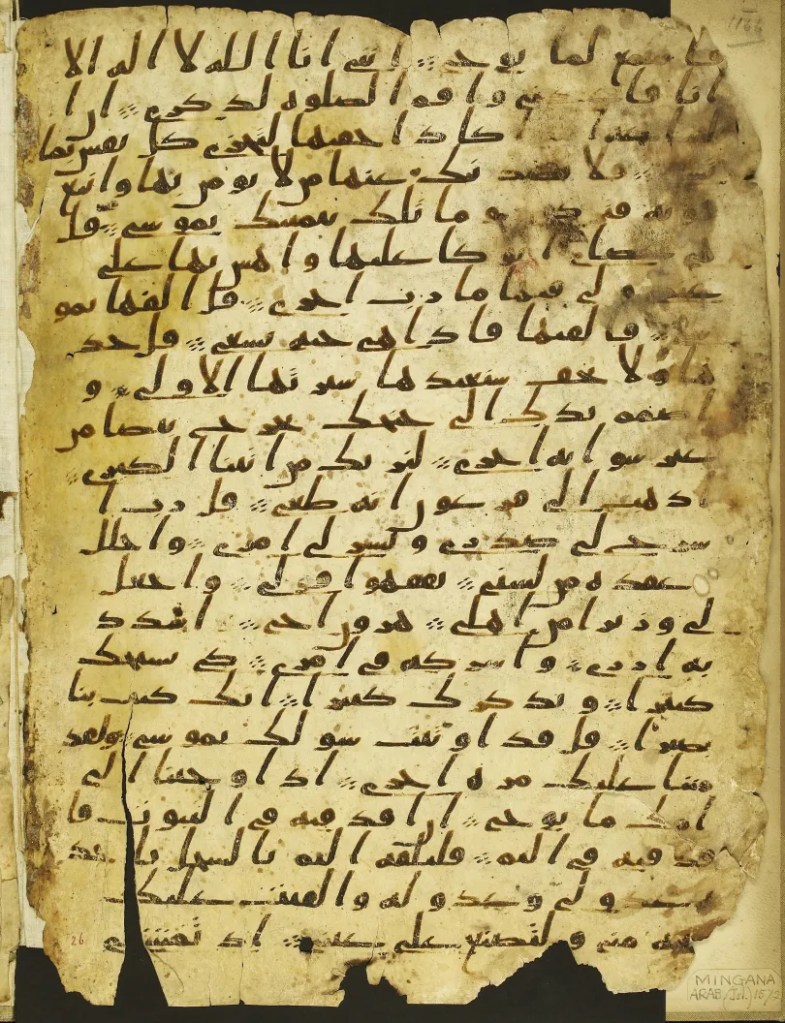 فاستمع لما يوحى انني انا الله لا اله الا
انا فاعبدني واقم الصلوه لذكري ان ا
اكاد اخفيها لتجزى كل نفس بما
فلا يصدنك عنها من لا يومن بها واتبع
وما تلك بيمينك يموسى قل
هي عصاي اتوكا عليها واهش بها على
غنمي ولي فيها مارب اخرى قل القها يمو
سى فالقيها فاذا هي حيه تسعى قل خذ
ها ولا تخف سنعيدها سيرتها الاولى و
اضمم يدك الى جنحك تخرج بيضا من
غير سو ايه اخرى لنريك من ايتنا الكبرى
اذهب الى فرعون انه طغى قل رب ا
شرح لي صدري ويسر لي امري واحلل
عقده من لسني يفقهوا قولي واجعل
لي وزيرا من اهلي هرون اخي اشدد
به ازري واشركه في امري كي نسبحك
كثيرا ونذكرك كثيرا انك كنت بنا
بصيرا قل قد اوتيت سولك يموسى ولقد
مننا عليك مره اخرى اذ اوحينا الى
امك ما يوحى ان اقذفيه في التبوت فا
قذفيه في اليم فليلقه اليم بالسحل ياخذه
عدو لي وعدو له والقيت عليك
محبه مني ولتصنع على عيني اذ تمشي
26
MINGANA
ARAB. (Isl.) 1572